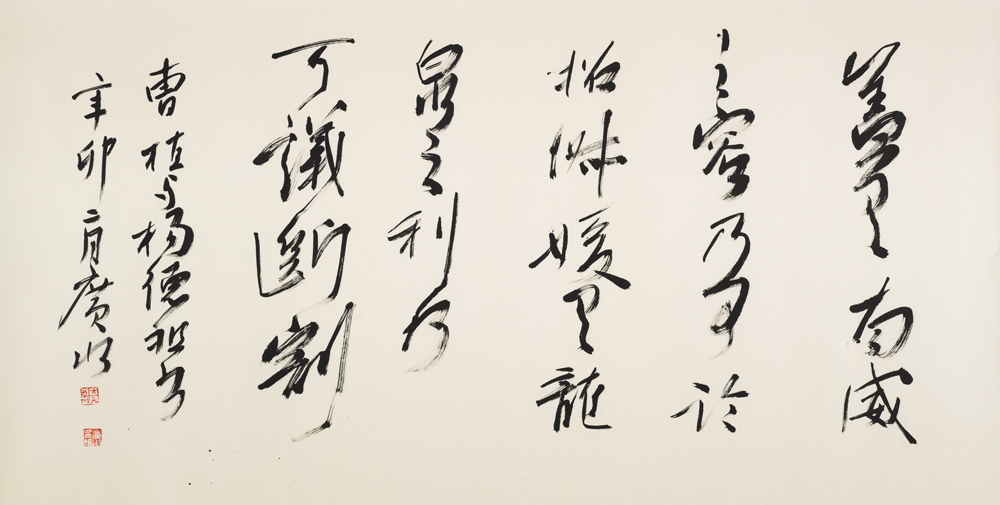 蓋有南威
之容乃可論
於淑媛有龍
泉之利乃
可議斷割
曹植与楊德祖書
辛卯二月廣